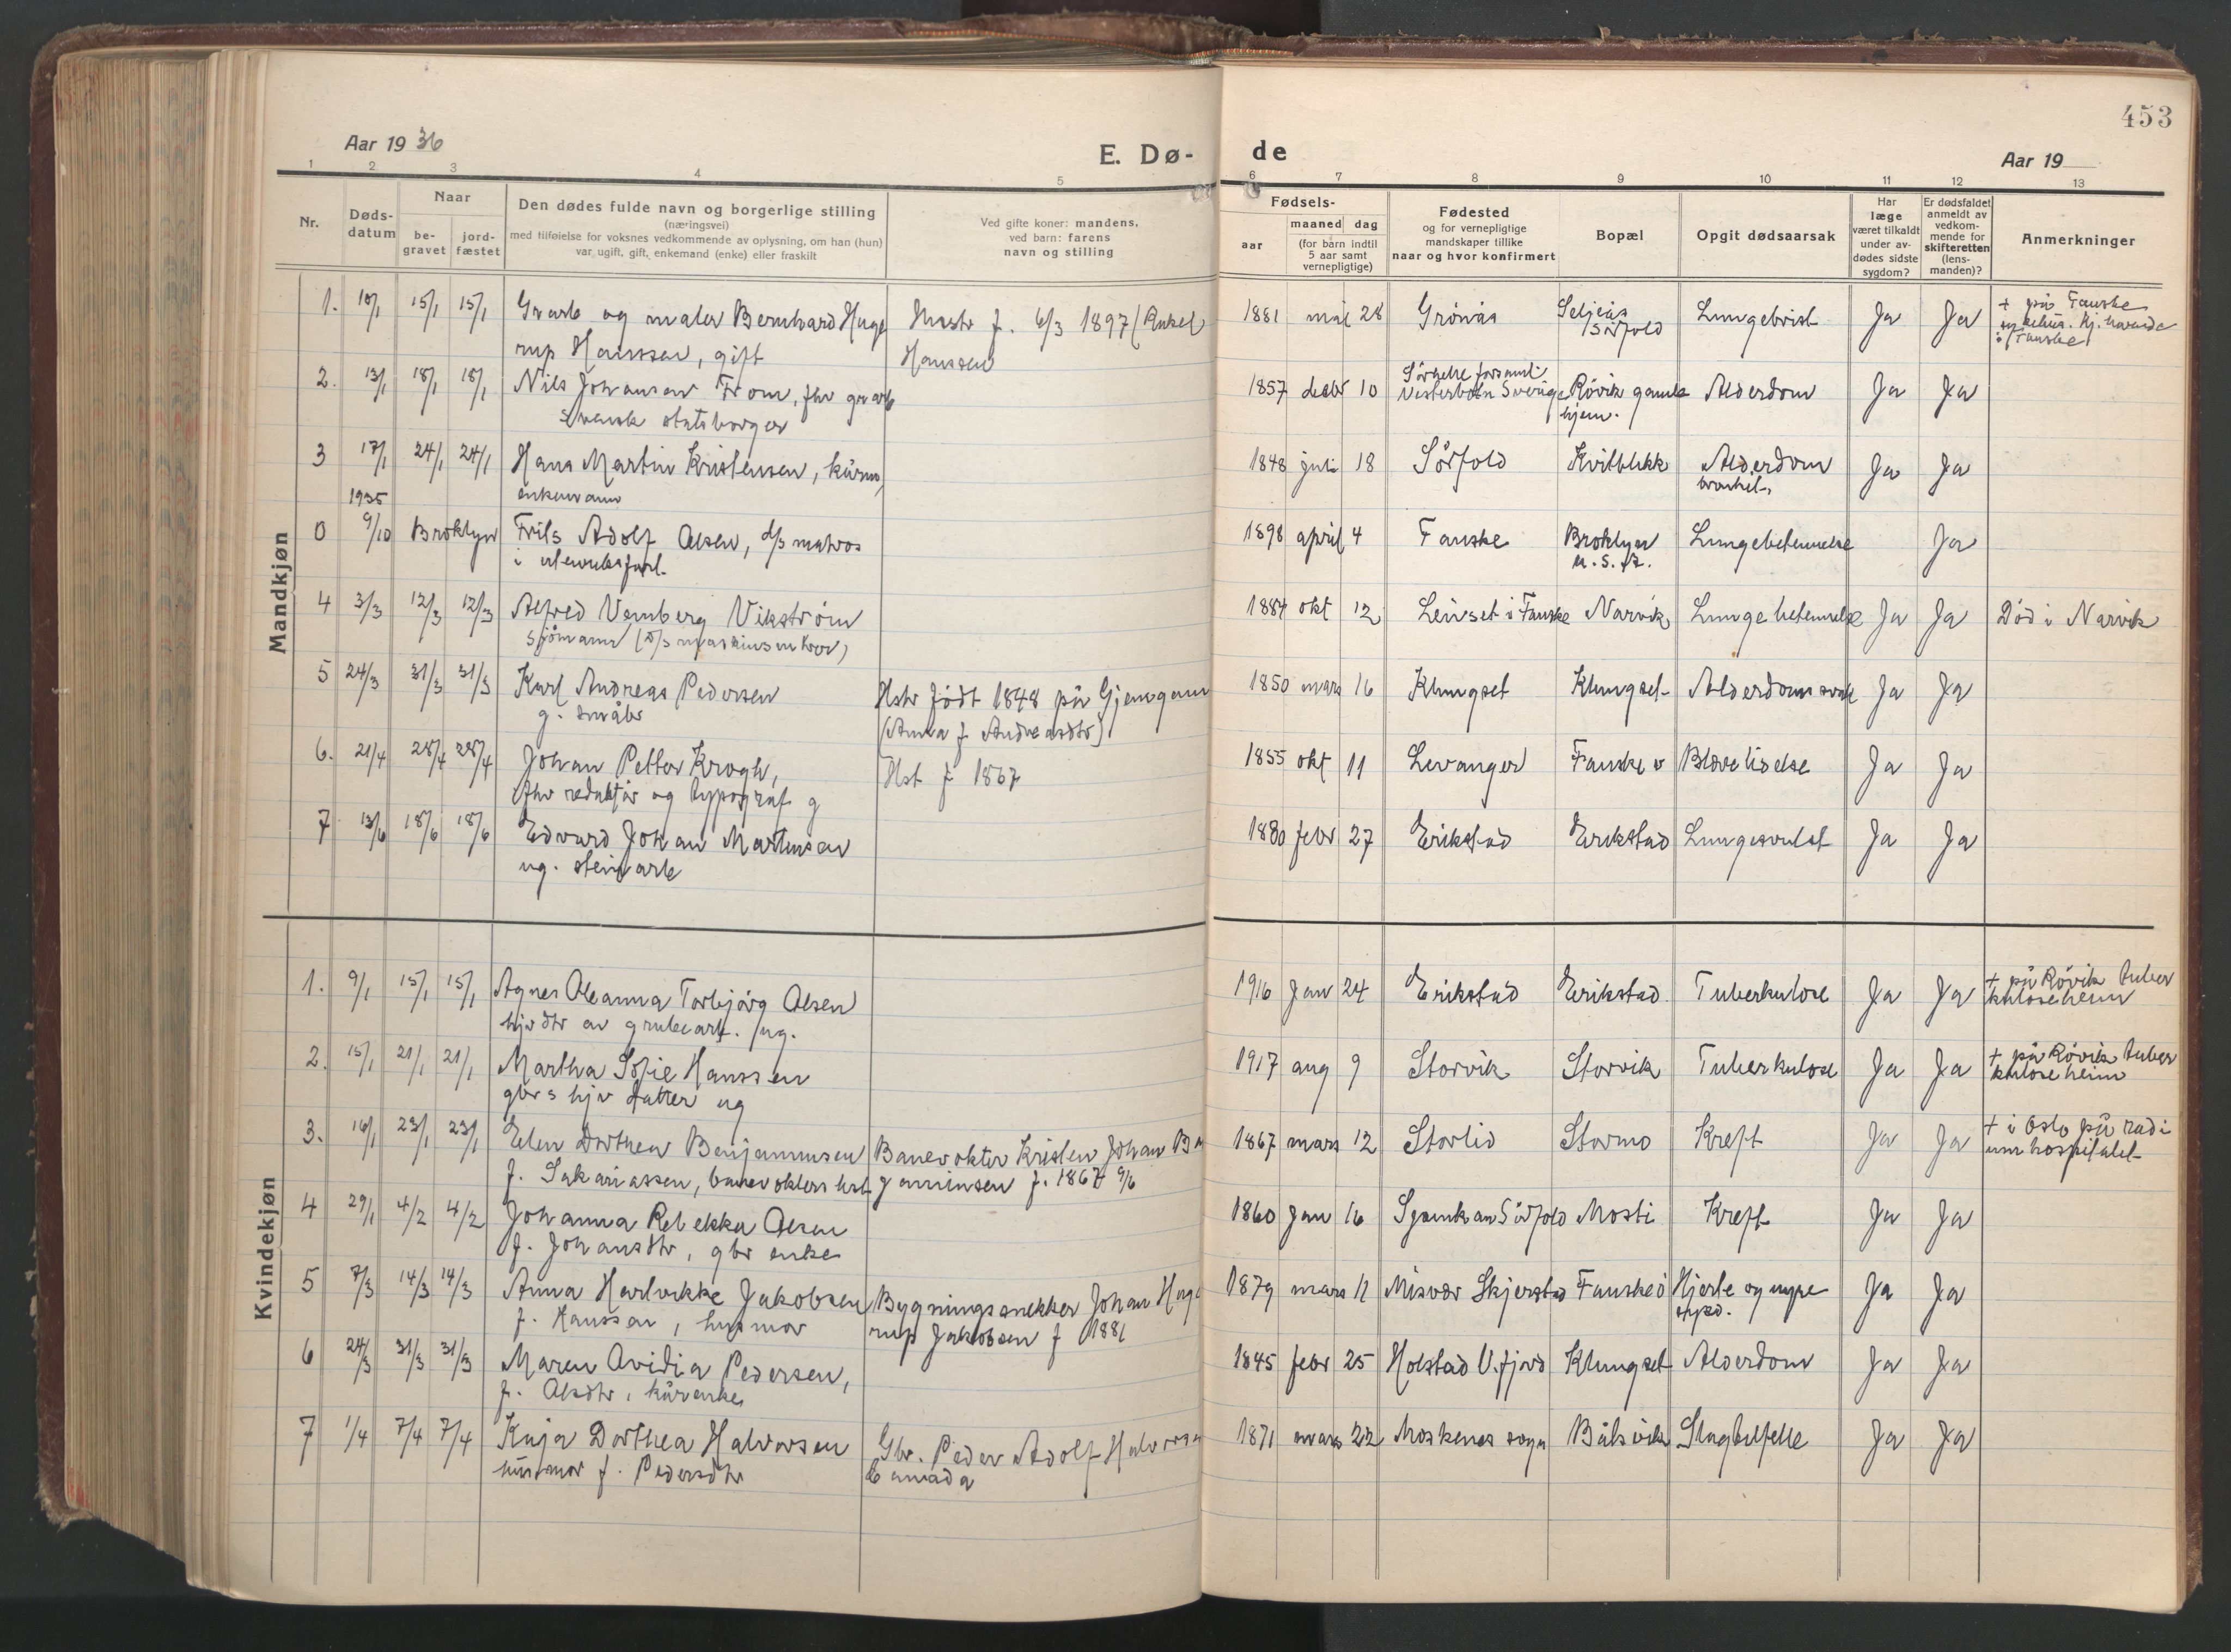 453
Aar 1936
E. Dø-
de
Aar 19
1 2 3 4 5 6 7 8 9 10 11 12 13
Nr.
Døds-
datum
Naar
be-
gravet
jord-
fæstet
Den dødes fulde navn og borgerlige stilling
(næringsvei)
med tilføielse for voksnes vedkommende av oplysning, om han (hun)
var ugift, gift, enkemand (enke) eller fraskilt
Ved gifte koner: mandens,
ved barn: farens
navn og stilling
Fødsels-
aar
maaned dag
(for barn indtil
5 aar samt
vernepligtige)
Fødested
og for vernepligtige
mandskaper tillike
naar og hvor konfirmert
Bopæl
Opgit dødsaarsak
Har
læge
været tilkaldt
under av-
dødes sidste
sygdom?
Er dødsfaldet
anmeldt av
vedkom-
mende for
skifteretten
(lens-
manden)?
Anmerkninger
Mandkjøn
1. 10/1 15/1 15/1 Grarb og maler Bernhard Huge Hustr f. 6/3 1897 (Rakel 1881 mai 28 Grönås Seljeås Lungebrist Ja Ja + på Fauske
rup Hanssen, gift Hanssen Sörfold
i Fauske
2. 13/1 18/1 18/1 Nils Johansen From, fhv grarb 1857 debr 10 Vesterbotn Sverige Rövik gamle Alderdom Ja Ja
svensk statsborger hjem.
3 17/1 24/1 24/1 Hans Martin Kristensen, kårm, 1848 juli 18 Sörfold Kvitblikk Alderdom Ja Ja
enkemann
1935
0 9/10 Broklyn Frits Adolf Olsen, d/s matros 1898 april 4 Fauske Broklyn Lungebetennelse Ja
i utenriksfart U.S.A.
4 3/3 12/3 12/3 Alfred Vernberg Vikström 1884 okt 12 Leivset i Fauske Narvik Lungebetennelse Ja Ja Död i Narvik
sjömann
5 24/3 31/3 31/3 Karl Andreas Pedersen Hstr født 1848 på Gjemgam 1850 mars 16 Klungset Klungset Alderdomssvak Ja Ja
g. småbr (Anna f. Andreasdtr)
6. 21/4 28/4 28/4 Johan Petter Krogh, Hst f 1867 1855 okt 11 Levanger Fauske v Blærelidelse Ja Ja
fhv redaktör og typograf g
7 13/6 18/6 18/6 Edvard Johan Martinsen 1880 febr 27 Erikstad Erikstad Lungesvulst Ja Ja
ug. steinarb
Kvindekjøn
1. 9/1 15/1 15/1 Agnes Oleanna Torbjörg Olsen 1916 Jan 24 Erikstad Erikstad Tuberkulose Ja Ja + på Rövik tuber
hjv dtr av grubearb. ug. kuloseheim
2. 15/1 21/1 21/1 Martha Sofie Hanssen 1917 aug 9 Storvik Storvik Tuberkulose Ja Ja + på Rövik tuber
gbrs hjv datter ug kuloseheim
3. 16/1 23/1 23/1 Elen Dorthea Benjaminsen Banevokter Kristen Johan Ben 1867 mars 12 Storlid Stormo Kreft Ja Ja + i Oslo på radi
f. Sakariassen, banevokters hst jaminsen f. 1867 9/6 umhospitalet
4 29/1 4/2 4/2 Johanna Rebekka Olsen 1860 Jan 16 Sörfold Mosti Kreft Ja Ja
f. Johansdtr, gbr enke
5 7/3 14/3 14/3 Anna Hartvikke Jakobsen Bygningssnekker Johan Huge 1879 mars 11 Misvær Skjerstad Fauskeö Hjerte og nyre Ja Ja
f. Hanssen, husmor rup Jakobsen f 1881
6 24/3 31/3 31/3 Maren Ovidia Pedersen, 1845 febr 25 Holstad V.fjord Klungset Alderdom Ja Ja
f. Olsdtr, kårenke
7 1/4 7/4 7/4 Kaja Dorthea Halvorsen Gbr. Peder Adolf Halvorsen 1871 mars 22 Moskenes sogn Bålsvik Slagtilfelle Ja Ja
husmor f. Pedersdtr Canada